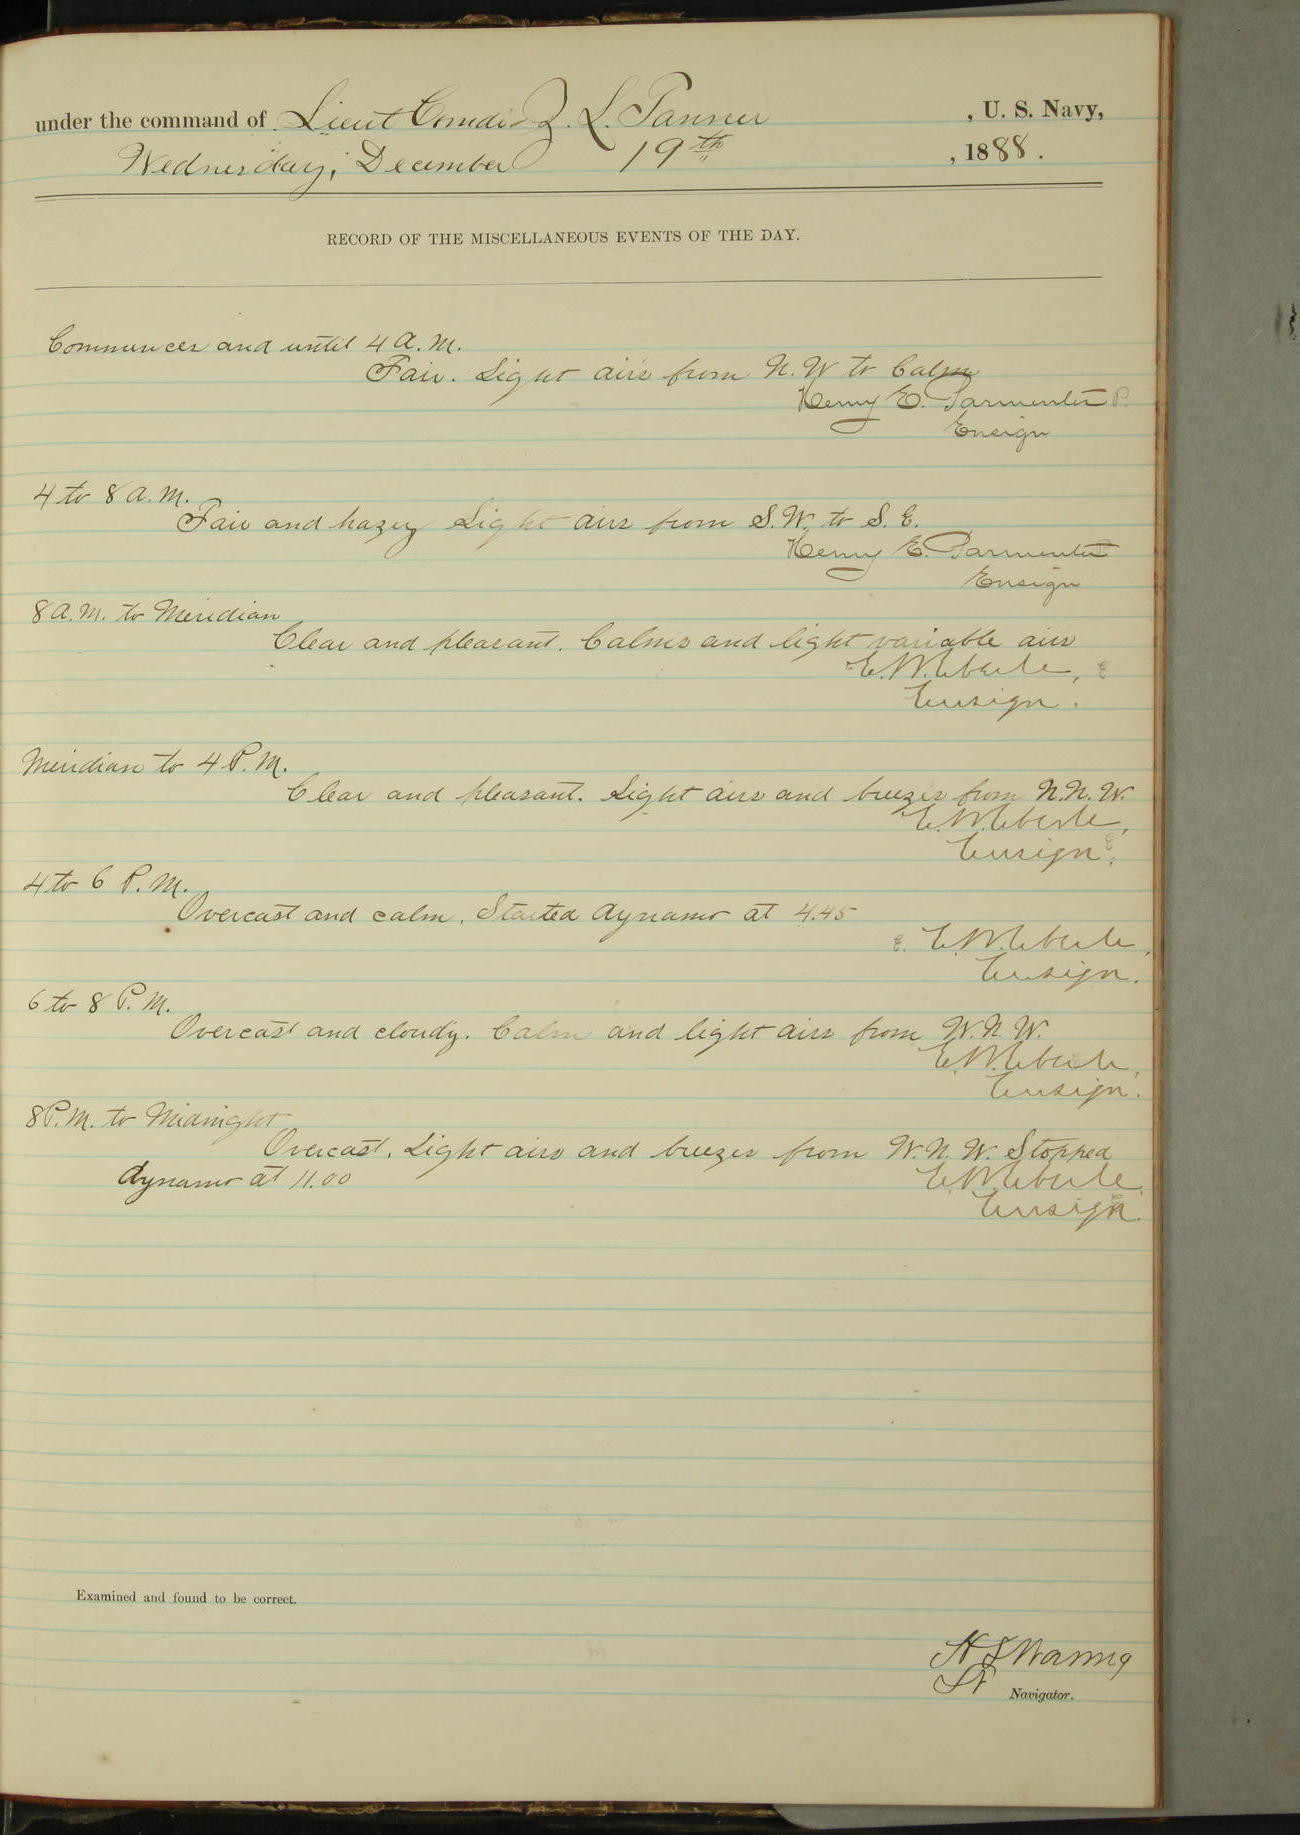 under the command of Lieut Comdr Z. L. Tanner , U. S. Navy,
Wednesday, December 19th , 1888.
RECORD OF THE MISCELLANEOUS EVENTS OF THE DAY.
Commences and until 4 A.M.
Fair. Light airs from N.W to Calm
Henry E. Parmenter P.
Ensign
4 to 8 A.M.
Fair and hazy Light airs from S.W. to S.E.
Henry E. Parmenter
Ensign
8 A.M. to Meridian
Clear and pleasant. Calms and light variable airs
E.W. Eberle, E
Ensign.
Meridian to 4 P.M.
Clear and pleasant. Light airs and breezes from N.N.W.
E.W. Eberle,
Ensign. E
4 to 6 P.M.
Overcast and calm. Started dynamo at 4.45
E. E.W. Eberle,
Ensign.
6 to 8 P.M.
Overcast and cloudy. Calm and light airs from W.N.W.
E.W. Eberle,
Ensign.
8 P.M. to Midnight
Overcast. Light airs and breezes from W.N.W. Stopped
dynamo at 11.00 E.W. Eberle
Ensign.
Examined and found to be correct.
H S Waring
Lt Navigator.